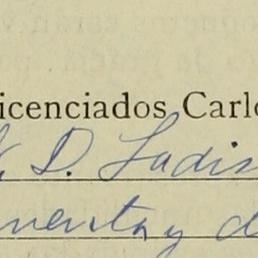 icenciados Carlo
D. Ladis
y d